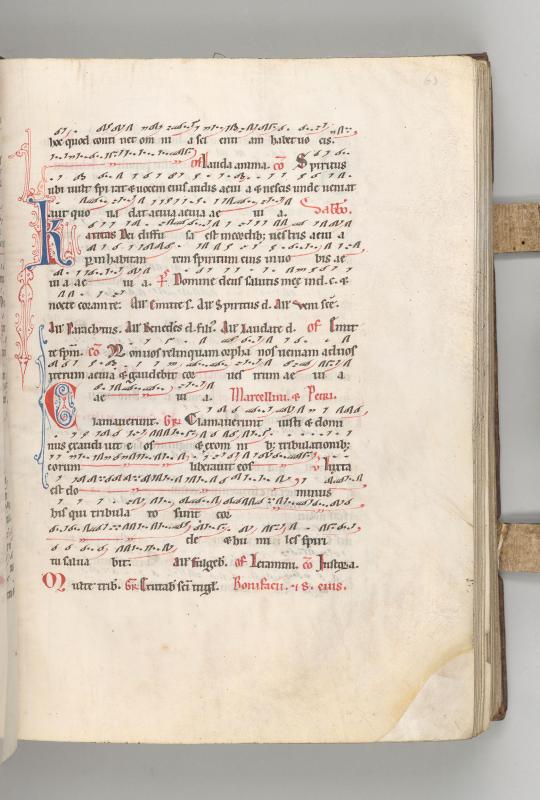 63
hoc quod conti net om ni a sci enti am habet uo cis.
of Lauda anima. co Spiritus
ubi uult spirat & uocem eius audis aeui a & nescis unde ueniat
aut quo ua dat aeuia aeuia ae ui a. Sabbo.
Karitas Dei diffu sa est in cordib; nestris aeui a
p inhabitan tem spiritum eius in uo bis ae
ui a ae ui a. ps Domine deus salutis meę in d. c. &
nocte coram te. All Emitte s. All Spiritus d. All Veni sce.
All Paraclytus. All Benedcs d. filus. All Laudate d. of Emit
te spm. co Non uos relinquam orpha nos ueniam ad uos
iterum aeuia & gaudebit cor ues trum ae ui a
ae ui a. Marcellini. & Petri.
Clamauerunt. Gr Clamauerunt iusti & domi
nus exaudi uit e os & ex om ni b; tribulationib;
eorum liberauit eos v Iuxta
est do minus
his qui tribula to sunt cor
de & hu mi les spiri
tu salua bit. All Fulgeb. of Letamini. co Iustor a.
Multe trib. Gr Exultab sci in gl. Bonifacii. & s. eius.